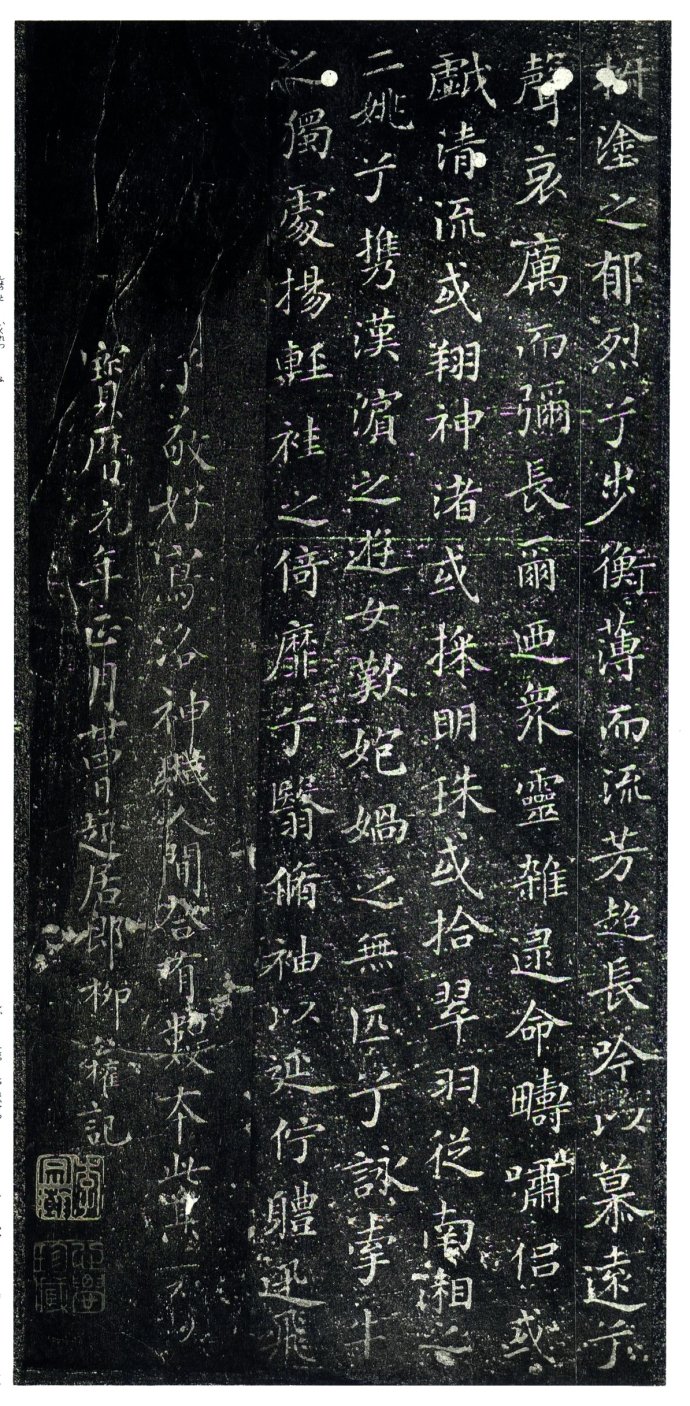 椒塗之郁烈兮步衡薄而流芳超長吟以慕遠兮
聲哀厲而彌長爾迺衆靈雜遝命疇嘯侶或
戲清流或翔神渚或採明珠或拾翠羽從南湘之
二姚兮携漢濱之遊女歎匏媧之無匹兮詠牽牛
之獨處揚輕袿之倚靡兮翳脩袖以延佇體迅飛
子敬好寫洛神賦人間合有數本此其一
寶曆元年正月廿四日起居郎柳 記